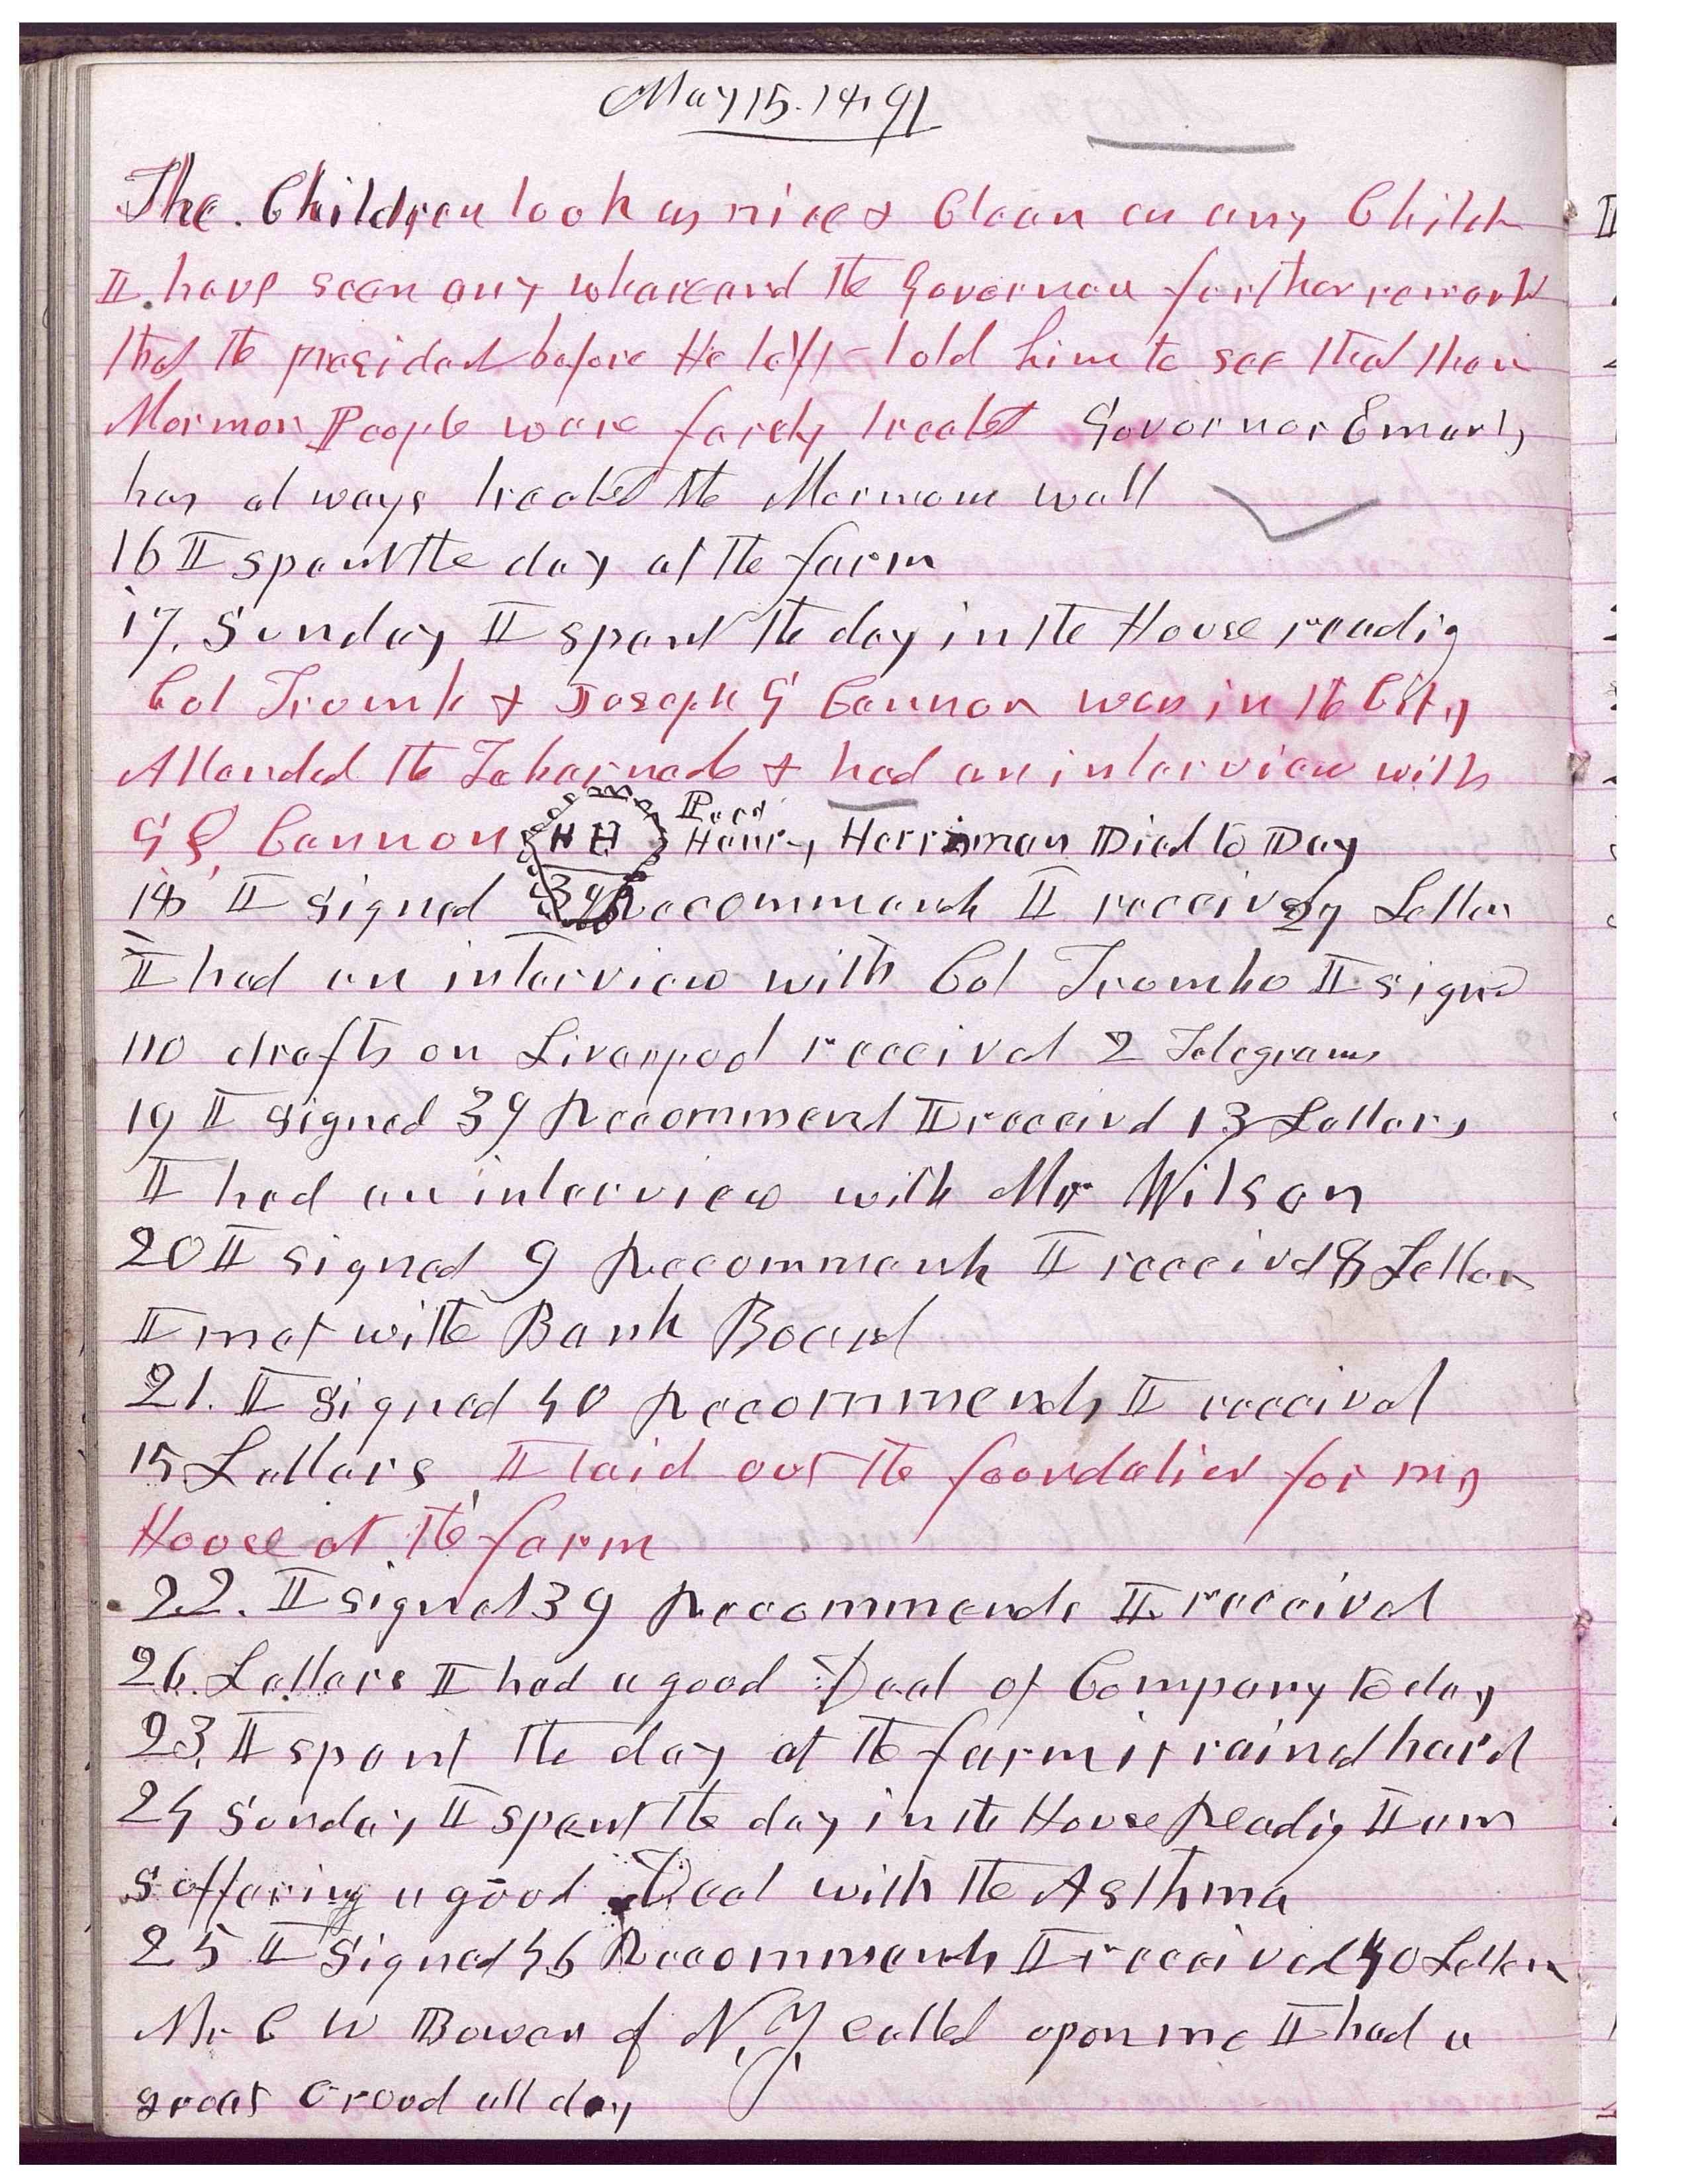 May 15. 1891
The Children look as nice & Clean as any Childn
I have seen any whare and the Governor further remarkd
that the president before He left told him to see that the
Mormon People were farely treated Governor Emary
has always treated the Mormons well
16 I spent the day at the farm
17. Sunday I spent the day in the House readig
Col Tromb & Joseph G Cannon was in the City
Attended the Tabernacle & had an interview with
G Q Cannon HH Pres Henry Herriman Died to Day
18 I signed 39 Recommends I received 29 Letters
I had an interview with Col Trombo I signed
110 drafts on Liverpool received 2 Telegrams
19 I signed 39 Recommend I receivd 13 Letters
I had an interview with Mr Wilson
20 I signed 9 Recommends I receivd 8 Letters
I met with Bank Board
21. I signed 40 Recommends I received
15 Letters I laid out the foundation for my
House at the farm
22. I signed 39 Recommends I received
26. Letters I had a good Deal of Company to day
23. I spent the day at the farm it raind hard
24 Sunday I spent the day in the House Readig I am
suffering a good Deal with the Asthma
25 I Signed 46 Recommends I received 40 Letters
Mr C W Bowen of N.Y. called upon me I had a
great Croud all day